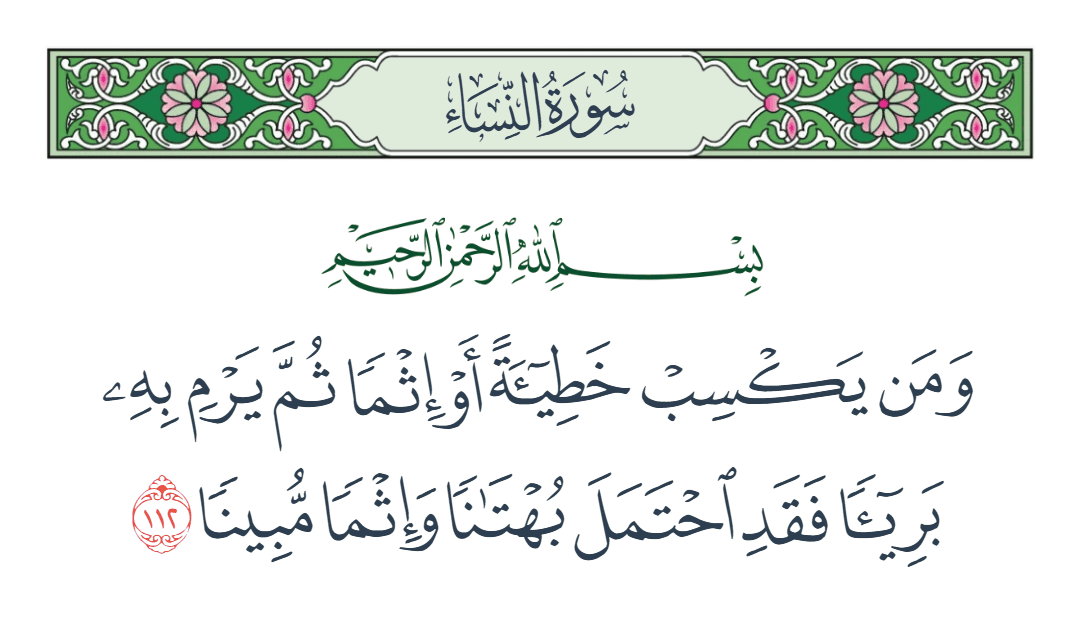 سُورَةُ النِّسَاءِ
بِسْمِ ٱللَّهِ ٱلرَّحْمَٰنِ ٱلرَّحِيمِ
وَمَن يَكْسِبْ خَطِيٓـَٔةً أَوْ إِثْمًا ثُمَّ يَرْمِ بِهِۦ
بَرِيٓـًٔا فَقَدِ ٱحْتَمَلَ بُهْتَٰنًا وَإِثْمًا مُّبِينًا ١١٢